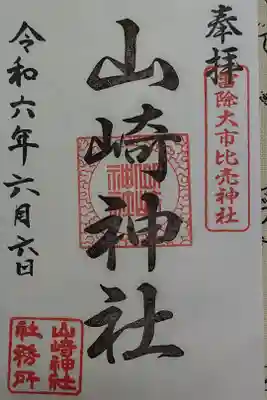 奉拝
除大市比売神社
山崎神社
令和六年六月六日
山崎神社
社務所